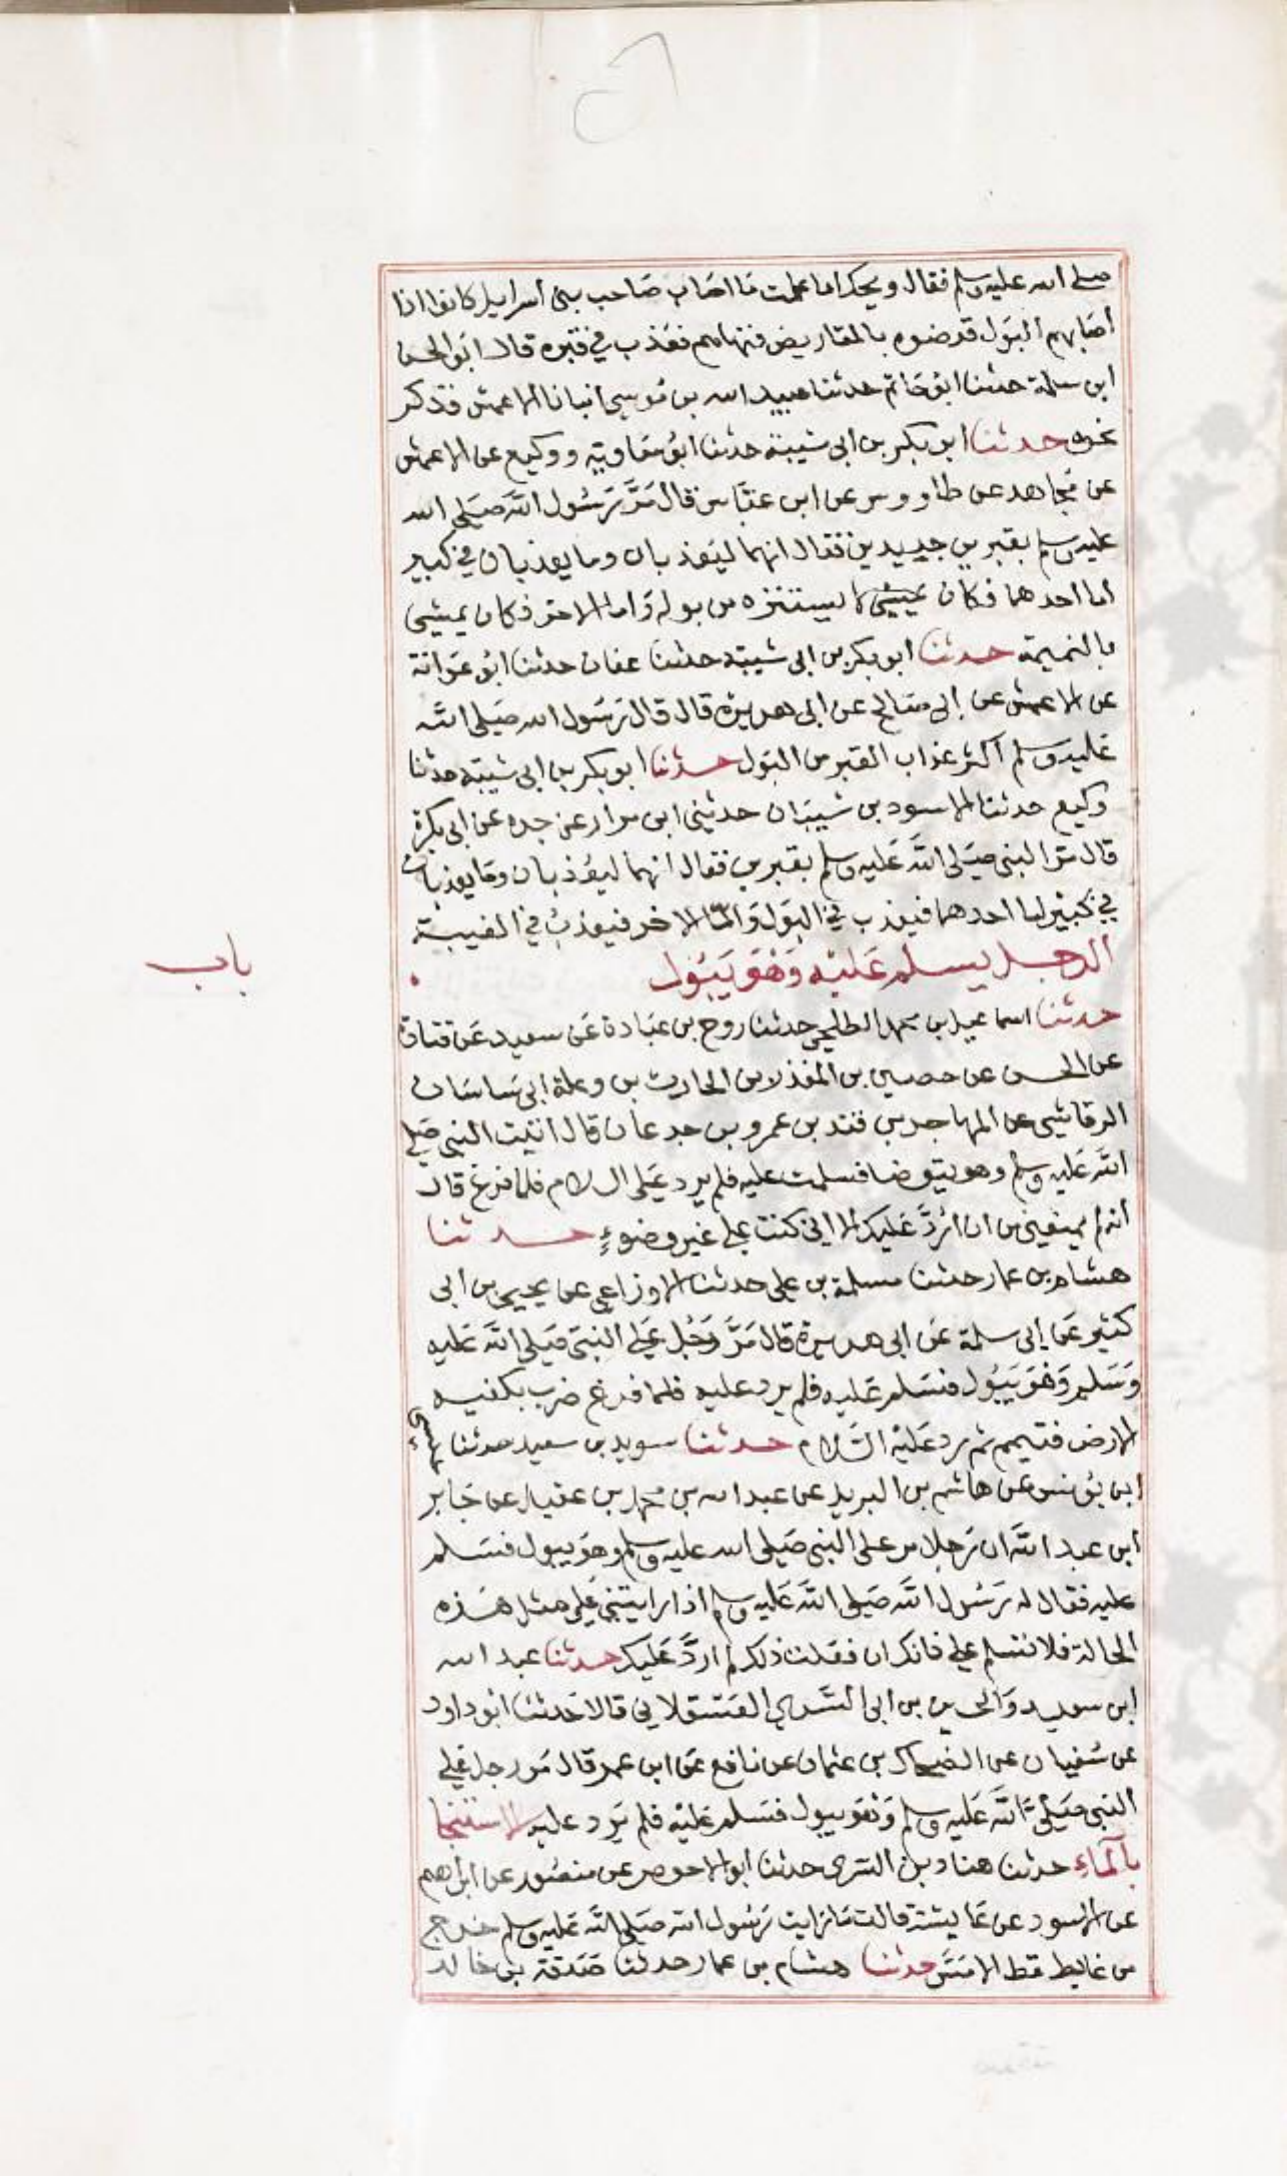 صلى الله عليه وسلم فقال ويحك اما علمت ما اصاب صاحب بني اسرايل كانوا اذا
اصابهم البول قرضوه بالمقاريض فنهاهم فعذب في قبره قال ابو الحسن
ابن سلمة حدثنا ابو حاتم حدثنا عبيد الله بن موسى انبانا الاعمش فذكر
نحوه حدثنا ابو بكر بن ابي شيبة حدثنا ابو معاوية ووكيع عن الاعمش
عن مجاهد عن طاووس عن ابن عباس قال مَرَّ رَسُول اللَّه صَلى الله
عليه وسلم بقبرين جديدين فقال انهما ليعذبان وما يعذبان في كبير
اما احدهما فكان لا يستنزه من بوله واما الاخر فكان يمشي
بالنميمة حدثنا ابو بكر بن ابي شيبة حدثنا عفان حدثنا ابو عوانة
عن الاعمش عن ابي صالح عن ابي هريرة قال قال رسُول الله صَلى الله
عليه وسلم اكثر عذاب القبر من البول حدثنا ابو بكر بن ابي شيبة حدثنا
وكيع حدثنا الاسود بن شيبان حدثني ابن مرار عن جده عن ابي بكرة
قال مر النبي صَلى اللَّه عَليه وسلم بقبرين فقال انهما ليعذبان وما يعذبان
في كبير اما احدهما فيعذب في البول واما الاخر فيعذبُ في الغيبة
باب
الرجل يسلم عَليْه وَهْوَ يَبُول
حدثنا اسماعيل بن محمد الطلحي حدثنا روح بن عبَادة عَن سعيد عَن قتادة
عن الحسن عن حصين بن المنذر بن الحارث بن وعلة ابي ساسان
الرقاشي عن المهاجر بن قنفد بن عمرو بن جدعان قال اتيت النبي صَلى
اللَّه عَليه وسلم وهو يتوضا فسلمت عليه فلم يرد عَلى السلام فلما فرغ قال
انه لم يمنعني من ان ارُدَّ عَليك الا اني كنت على غير وضوءٍ حدثنا
هشام بن عمار حدثنا مسلمة بن علي حدثنا الاوزاعي عن يحيى بن ابي
كثير عَن ابي سلمة عَن ابي هريرة قال مَرَّ رَجُل عَلى النبي صَلى اللَّه عَليه
وَسَلم وَهْوَ يَبُول فسَلم عَليه فلم يرد عليه فلما فرغ ضرب بكفيه
الارض فتيمم ثم رد عَليْه السَّلام حدثنا سويد بن سعيد حدثنا عيسى
ابن يونس عن هاشم بن البريد عن عبد الله بن محمد بن عقيل عن جَابر
ابن عبد اللَّه ان رَجلا مر على النبي صَلى الله عليه وسلم وهو يبول فسَلم
عليه فقال له رَسُول اللَّه صَلى اللَّه عَليه وسلم اذا رايتني عَلى مثل هَذه
الحالة فلا تسلم على فانك ان فعلت ذلك لم اردَّ عَليك حدثنا عبد الله
ابن سعيد وَالحسين بن ابي السَّري العَسقلاني قالا حَدثنا ابُو داود
عن سُفيان عن الضحاك بن عثمان عن نافع عَن ابن عمر قال مَر رجل عَلى
النبي صَلى اللَّه عَليه وسلم وَهْوَ يبول فسَلم عَليْه فلم يَرد عليه الاستنجا
بالمَاءِ حدثنا هناد بن السَّري حدثنا ابو الاحوص عن منصُور عن ابراهيم
عن الاسود عن عَايشة قالت مَا رايت رَسُول الله صَلى اللَّه عَليه وسلم خرج
من غايط قط الا مَسَّ حدثنا هشام بن عمار حدثنا صَدقة بن خالد